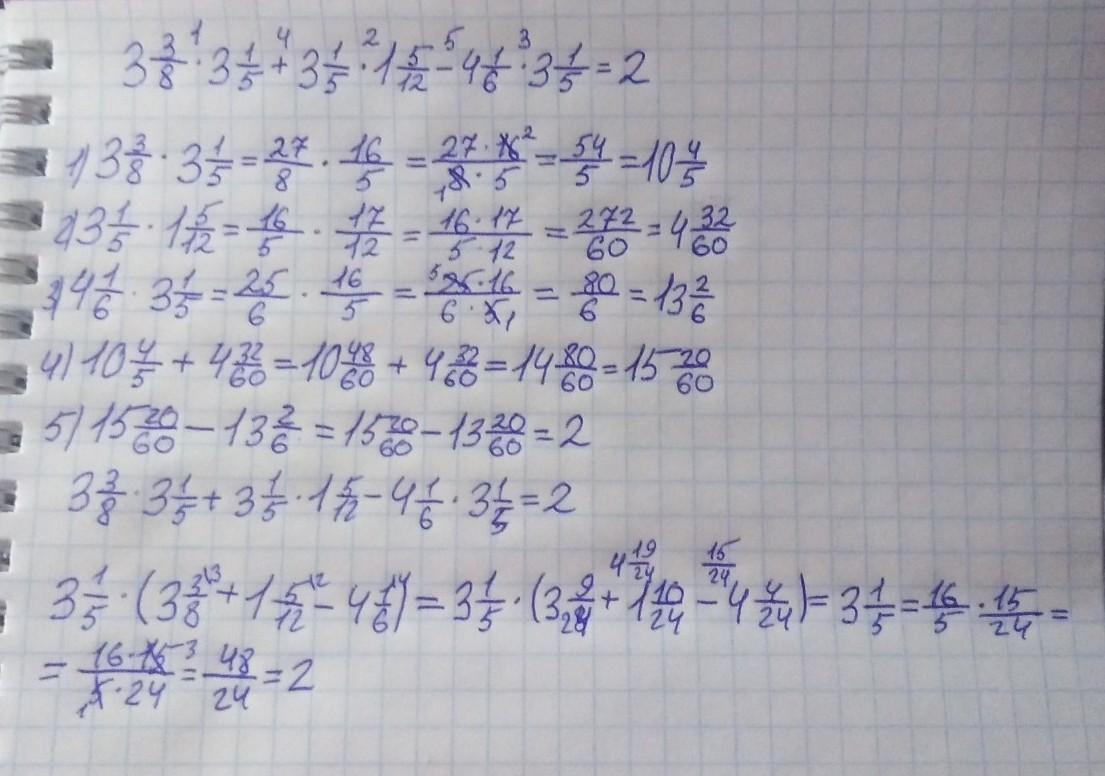 3 3/8 ·¹ 3 1/5 +⁴ 3 1/5 ·² 1 5/12 -⁵ 4 1/6 ·³ 3 1/5 = 2
1) 3 3/8 · 3 1/5 = 27/8 · 16/5 = 27 · 16²/₁8 · 5 = 54/5 = 10 4/5
2) 3 1/5 · 1 5/12 = 16/5 · 17/12 = 16 · 17/5 · 12 = 272/60 = 4 32/60
3) 4 1/6 · 3 1/5 = 25/6 · 16/5 = ⁵25 · 16/6 · 5₁ = 80/6 = 13 2/6
4) 10 4/5 + 4 32/60 = 10 48/60 + 4 32/60 = 14 80/60 = 15 20/60
5) 15 20/60 - 13 2/6 = 15 20/60 - 13 20/60 = 2
3 3/8 · 3 1/5 + 3 1/5 · 1 5/12 - 4 1/6 · 3 1/5 = 2
4 19/24 15/24
3 1/5 · (3 3/8\3 + 1 5/12\2 - 4 1/6\4) = 3 1/5 · (3 9/24 + 1 10/24 - 4 4/24) = 3 1/5 = 16/5 · 15/24 =
= 16 · 15³/₁5 · 24 = 48/24 = 2